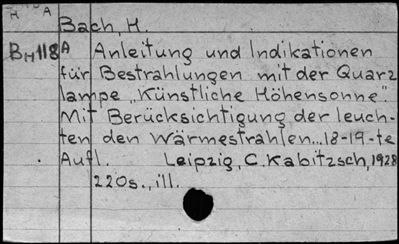 H A
Bach, H.
BH118A Anleitung und Indikationen
für Bestrahlungen mit der Quarz
lampe „Künstliche Höhensonne".
Mit Berücksichtigung der leuch-
ten den Wärmestrahlen...18-19-te
Aufl. Leipzig, C. Kabitzsch, 1928
220s., ill.